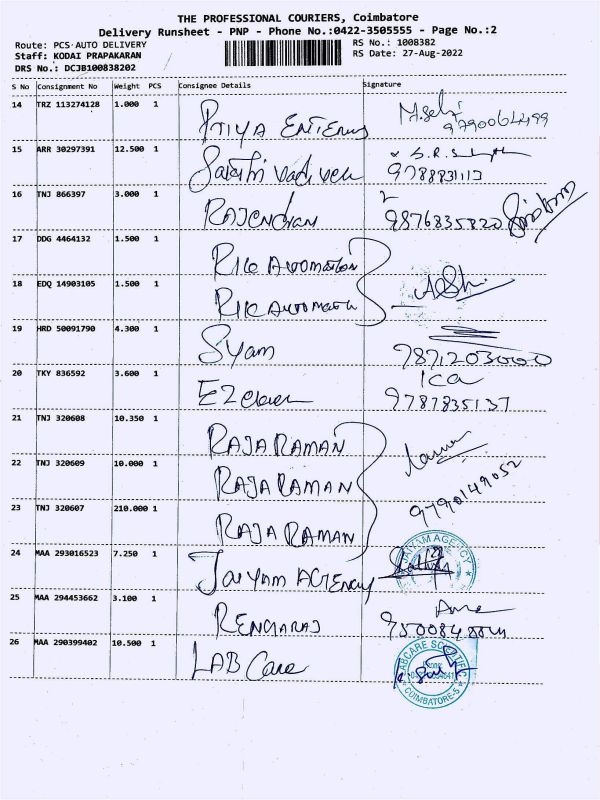 THE PROFESSIONAL COURIERS, Coimbatore
Delivery Runsheet - PNP - Phone No.:0422-3505555 - Page No.:2
Route: PCS-AUTO DELIVERY RS No.: 1008382
Staff: KODAI PRAPAKARAN RS Date: 27-Aug-2022
DRS No.: DCJB100838202
S No Consignment No Weight PCS Consignee Details Signature
14 TRZ 113274128 1.000 1 PRIYA
15 ARR 30297391 12.500 1 Sakthi vadivel 9788831113
16 TNJ 866397 3.000 1 RAJENDRAN 9876835820
17 DDG 4464132 1.500 1 RIG AUTOMATION
18 EDQ 14903105 1.500 1
19 HRD 50091790 4.300 1 Syam 7871203000
20 TKY 836592 3.600 1 9787835137
21 TNJ 320608 10.350 1 RAJARAMAN
22 TNJ 320609 10.000 1 RAJARAMAN 9790149052
23 TNJ 320607 210.000 1 RAJARAMAN
24 MAA 293016523 7.250 1 JAIYAM AGENCY
25 MAA 294453662 3.100 1 RENGARAJ
26 MAA 290399402 10.500 1 LAB Care
COIMBATORE-5